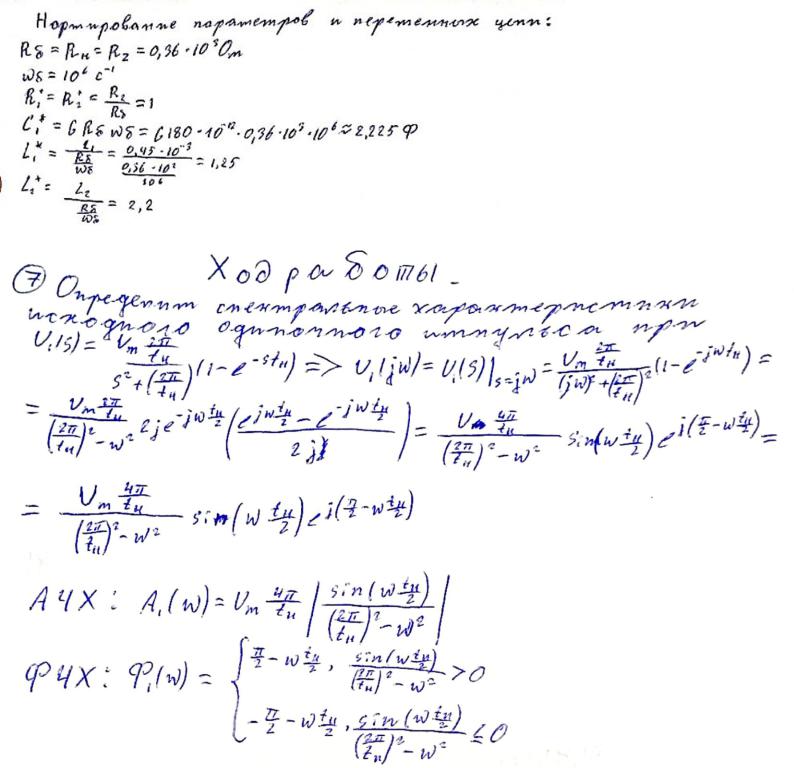 Нормирование параметров и переменных цепи:
Rδ = Rн = R2 = 0,36 · 10³ Ом
wδ = 10⁶ c⁻¹
R₁* = R₂* = R₂/Rδ = 1
C₁* = C Rδ wδ = 6180 · 10⁻¹² · 0,36 · 10³ · 10⁶ ≈ 2,225 Ф
L₁* = L₁/(Rδ/wδ) = (0,45 · 10⁻³)/((0,36 · 10³)/10⁶) = 1,25
L₂* = L₂/(Rδ/wδ) = 2,2
Ход работы.
⑦ Определим спектральные характеристики
исходного одиночного импульса при
U₁(s) = (Um 2π/tи)/(s² + (2π/tи)²) (1 - e^(-stи)) => U₁(jw) = U₁(s)|s=jw = (Um 2π/tи)/((jw)² + (2π/tи)²) (1 - e^(-jwtи)) =
= (Um 2π/tи)/((2π/tи)² - w²) 2j e^(-jw tи/2) ((e^(jw tи/2) - e^(-jw tи/2))/2j) = (Um 4π/tи)/((2π/tи)² - w²) sin(w tи/2) e^(j(π/2 - w tи/2)) =
= (Um 4π/tи)/((2π/tи)² - w²) sin(w tи/2) e^(j(π/2 - w tи/2))
АЧХ: A₁(w) = Um 4π/tи |sin(w tи/2)/((2π/tи)² - w²)|
ФЧХ: Φ₁(w) = { π/2 - w tи/2, sin(w tи/2)/((2π/tи)² - w²) > 0
-π/2 - w tи/2, sin(w tи/2)/((2π/tи)² - w²) ≤ 0